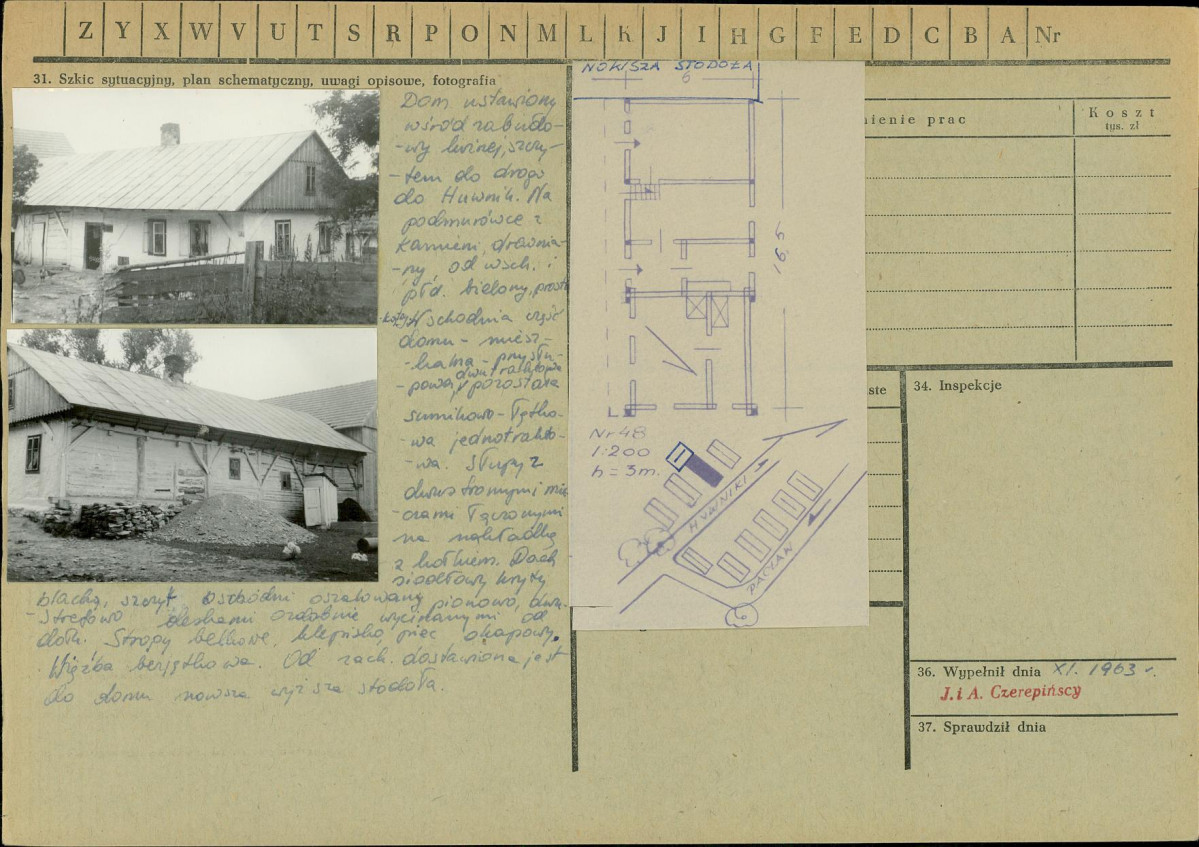 Z Y X W V U T S R P O N M L K J I H G F E D C B A Nr
31. Szkic sytuacyjny, plan schematyczny, uwagi opisowe, fotografia
Dom ustawiony
wśród zabudo-
-wy luźnej, szczy-
-tem do drogi
do Huwnik. Na
podmurówce z
kamieni, drewnia-
-ny, od wsch. i
płd. bielony, prosto-
Wschodnia część
domu - miesz-
-kalna - przysłu-
dwutraktowa
-powa, pozostała
sumikowo-łątko-
-wa jednotrakto-
-wa. Słupy z
dwustronnymi mie-
-czami łączonymi
na nakładkę
z kołkiem. Dach
siodłowy kryty
blachą, szczyt wschodni oszalowany pionowo, dwu-
-strefowo deskami ozdobnie wycinanymi od
dołu. Stropy belkowe, klepisko, piec okapowy.
Więźba bezjętkowa. Od zach. dostawiona jest
do domu nowsza wyższa stodoła.
NOWSZA STODOŁA
6
16.5
Nr 48
1:200
h = 3m.
HUWNIKI
PACŁAW
ienie prac
Koszt
tys. zł
ste
34. Inspekcje
36. Wypełnił dnia XI. 1963 r.
J. i A. Czerepińscy
37. Sprawdził dnia